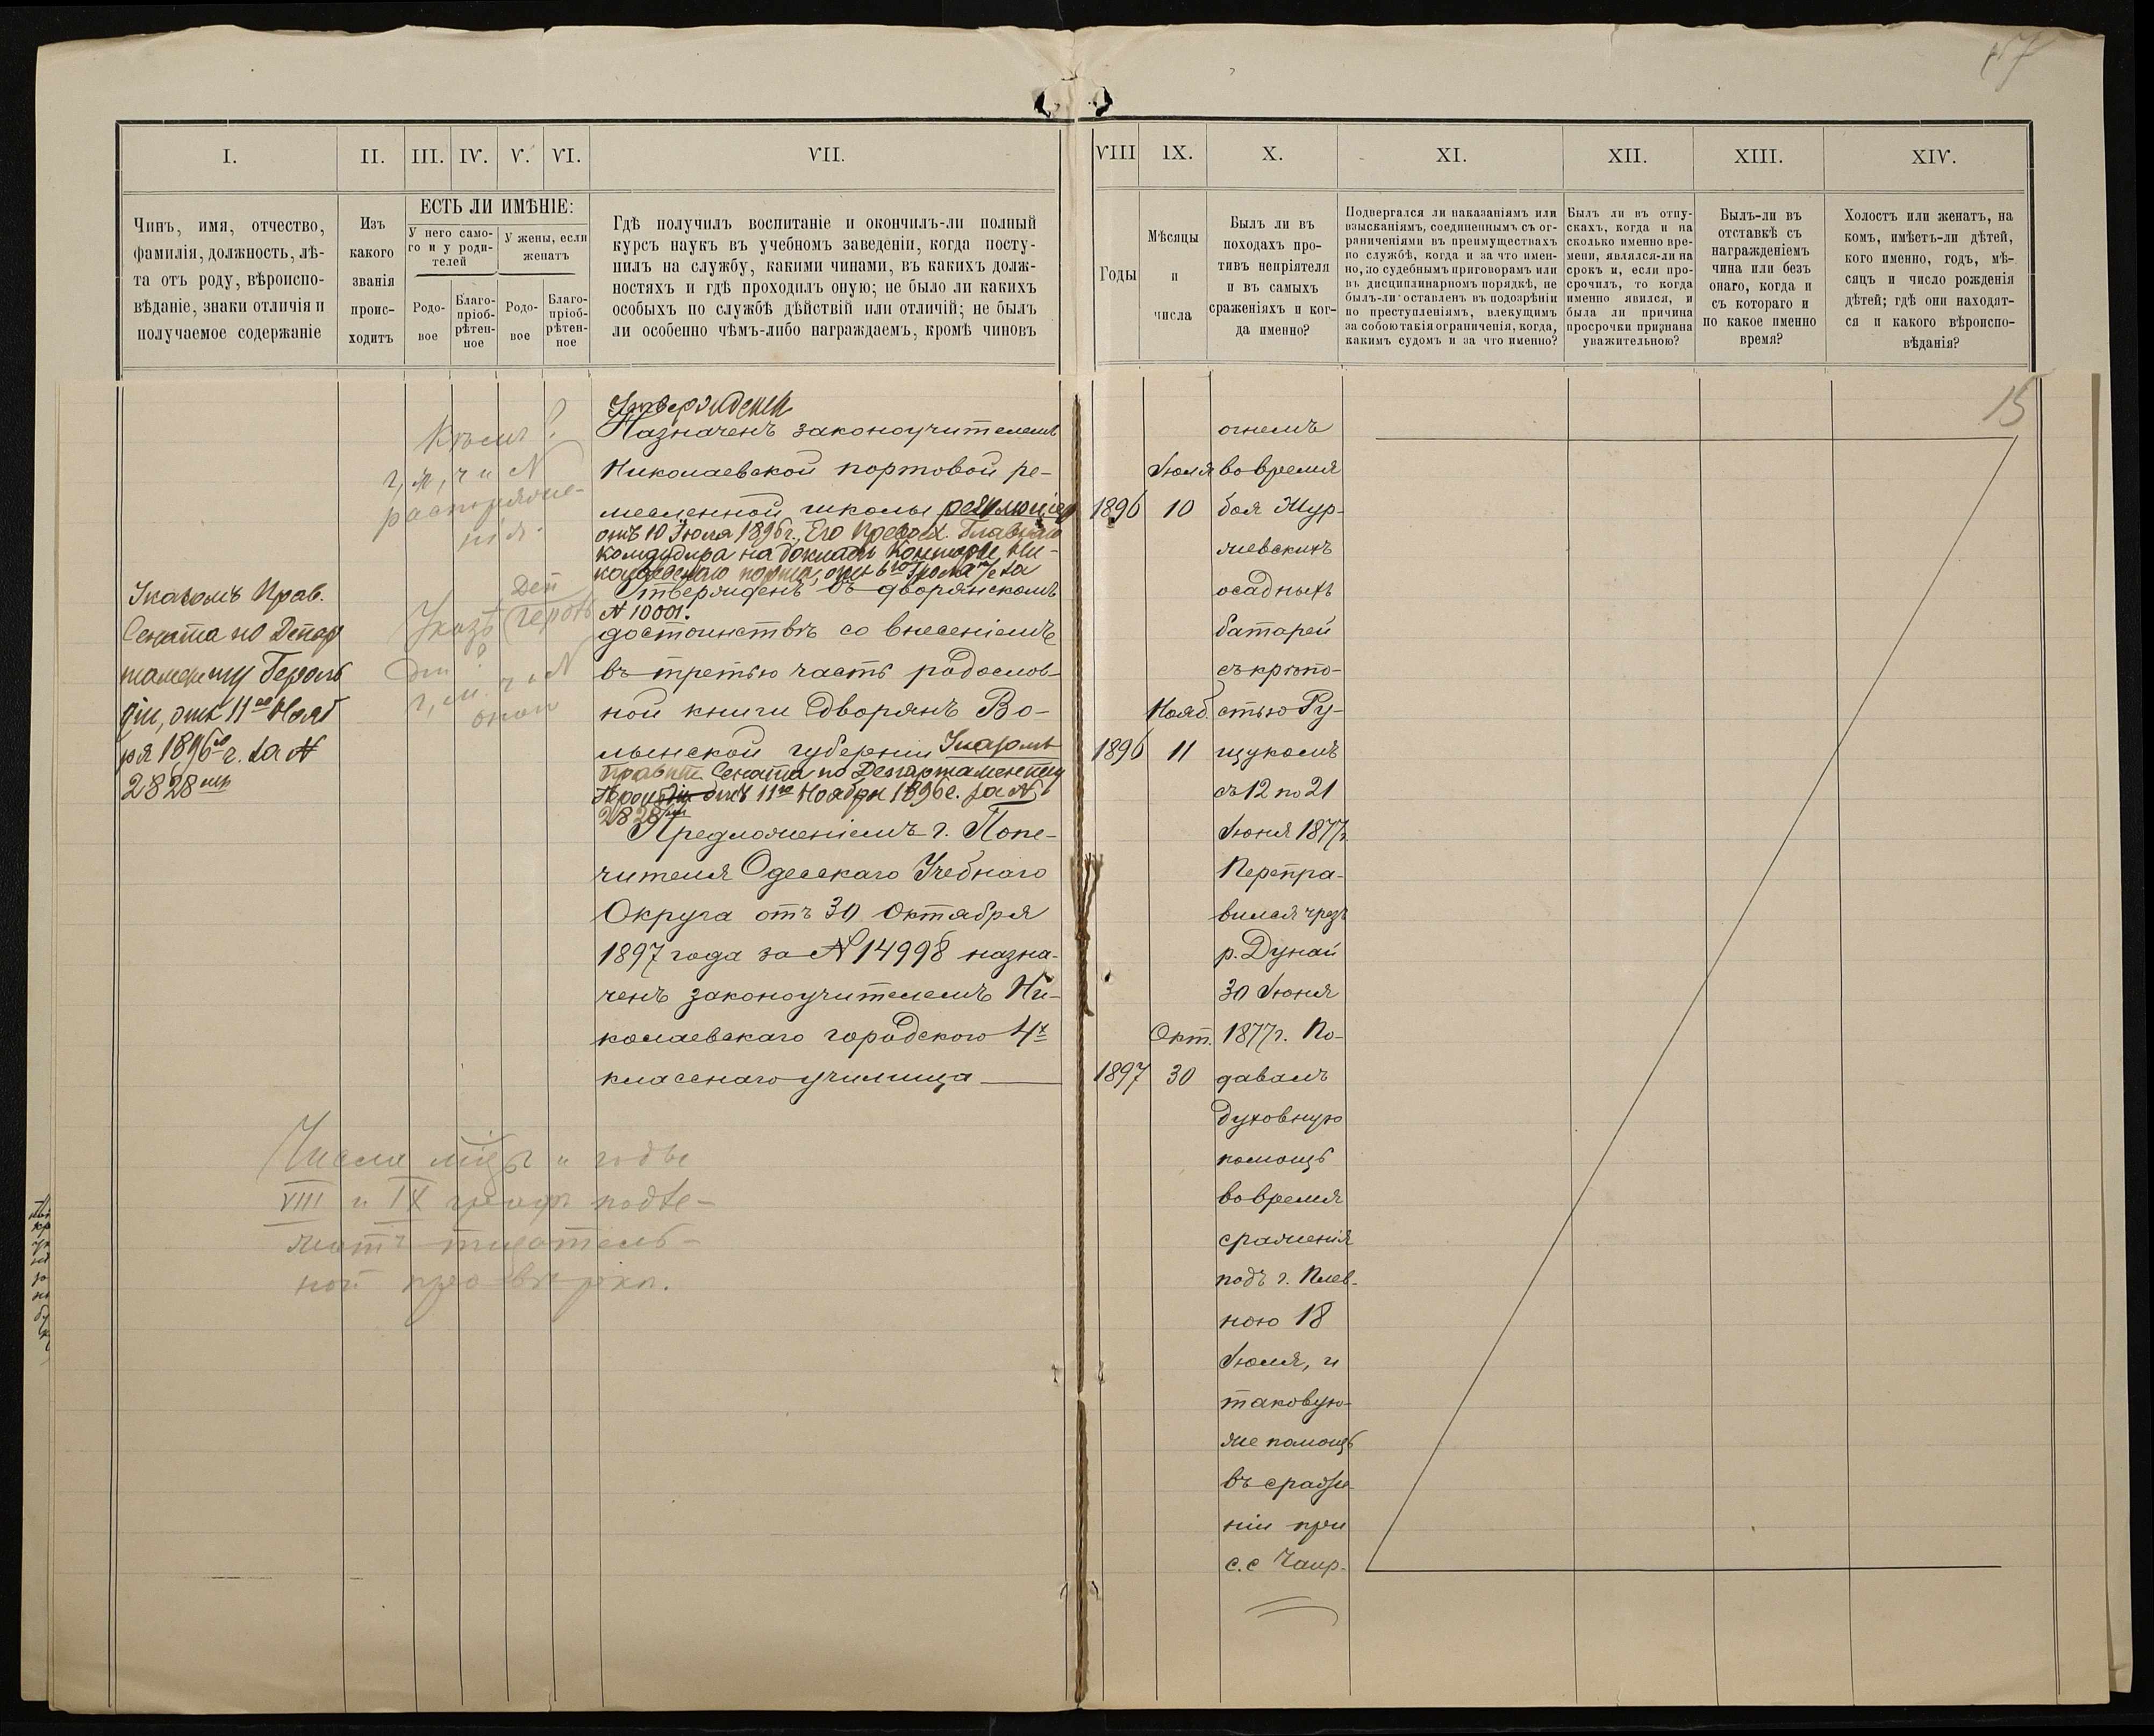 15
I.
II.
III.
IV.
V.
VI.
VII.
VIII
IX.
X.
XI.
XII.
XIII.
XIV.
Чинъ, имя, отчество,
фамилія, должность, лѣ-
та отъ роду, вѣроиспо-
вѣданіе, знаки отличія и
получаемое содержаніе
Изъ
какого
званія
проис-
ходитъ
ЕСТЬ ЛИ ИМѢНІЕ:
У него само-
го и у роди-
телей
У жены, если
женатъ
Родо-
вое
Благо-
пріоб-
рѣтен-
ное
Родо-
вое
Благо-
пріоб-
рѣтен-
ное
Гдѣ получилъ воспитаніе и окончилъ-ли полный
курсъ наукъ въ учебномъ заведеніи, когда посту-
пилъ на службу, какими чинами, въ какихъ долж-
ностяхъ и гдѣ проходилъ оную; не было ли какихъ
особыхъ по службѣ дѣйствій или отличій; не былъ
ли особенно чѣмъ-либо награждаемъ, кромѣ чиновъ
Годы
Мѣсяцы
и
числа
Былъ ли въ
походахъ про-
тивъ непріятеля
и въ самыхъ
сраженіяхъ и ког-
да именно?
Подвергался ли наказаніямъ или
взысканіямъ, соединеннымъ съ ог-
раниченіями въ преимуществахъ
по службѣ, когда и за что имен-
но, по судебнымъ приговорамъ или
въ дисциплинарномъ порядкѣ, не
былъ-ли оставленъ въ подозрѣніи
по преступленіямъ, влекущимъ
за собою такія ограниченія, когда,
какимъ судомъ и за что именно?
Былъ ли въ отпу-
скахъ, когда и на
сколько именно вре-
мени, являлся-ли на
срокъ и, если про-
срочилъ, то когда
именно явился, и
была ли причина
просрочки признана
уважительною?
Былъ-ли въ
отставкѣ съ
награжденіемъ
чина или безъ
онаго, когда и
съ котораго и
по какое именно
время?
Холостъ или женатъ, на
комъ, имѣетъ-ли дѣтей,
кого именно, годъ, мѣ-
сяцъ и число рожденія
дѣтей; гдѣ они находят-
ся и какого вѣроиспо-
вѣданія?
Указомъ Прав.
Сената по Депар
таменту Героль
діи, отъ 11го Нояб
ря 1896го г. за №
2828мъ
Кѣмъ?
г, м, ч и №
распоряже-
нія.
Указъ Деп
Герольдіи?
г, м. ч и №
онаго
Утвержденъ
Назначенъ законоучителемъ
Николаевской портовой ре-
месленной школы резолюціею
отъ 10 Іюля 1896 г., Его Превосх. Главнаго
командира на докладѣ Конторы Ни-
колаевскаго порта, отъ 6го Іюля за
№ 10001.
Утвержденъ въ дворянскомъ
достоинствѣ со внесеніемъ
въ третью часть родослов-
ной книги Дворянъ Во-
лынской губерніи Указомъ
Правит. Сената по Департаменту
Герольдіи отъ 11го Ноября 1896 г. за №
2828мъ
Предложеніемъ г. Попе-
чителя Одесскаго Учебнаго
Округа отъ 30 Октября
1897 года за № 14998 назна-
ченъ законоучителемъ Ни-
колаевскаго городского 4х
класснаго училища
Числа мѣс. и годы
VIII и IX графъ подле-
жатъ тщатель-
ной провѣркѣ.
1896
Іюля
10
1896
Нояб.
11
1897
Окт.
30
огнемъ
во время
боя Жур-
жевскихъ
осадныхъ
батарей
съ крѣпо-
стью Ру-
щукомъ
съ 12 по 21
Іюня 1877 г.
Перепра-
вился чрезъ
р. Дунай
30 Іюня
1877 г. По-
давалъ
духовную
помощь
во время
сраженія
подъ г. Плев-
ною 18
Іюля, и
таковую-
же помощь
въ сраже-
ніи при
с.с Чаир-